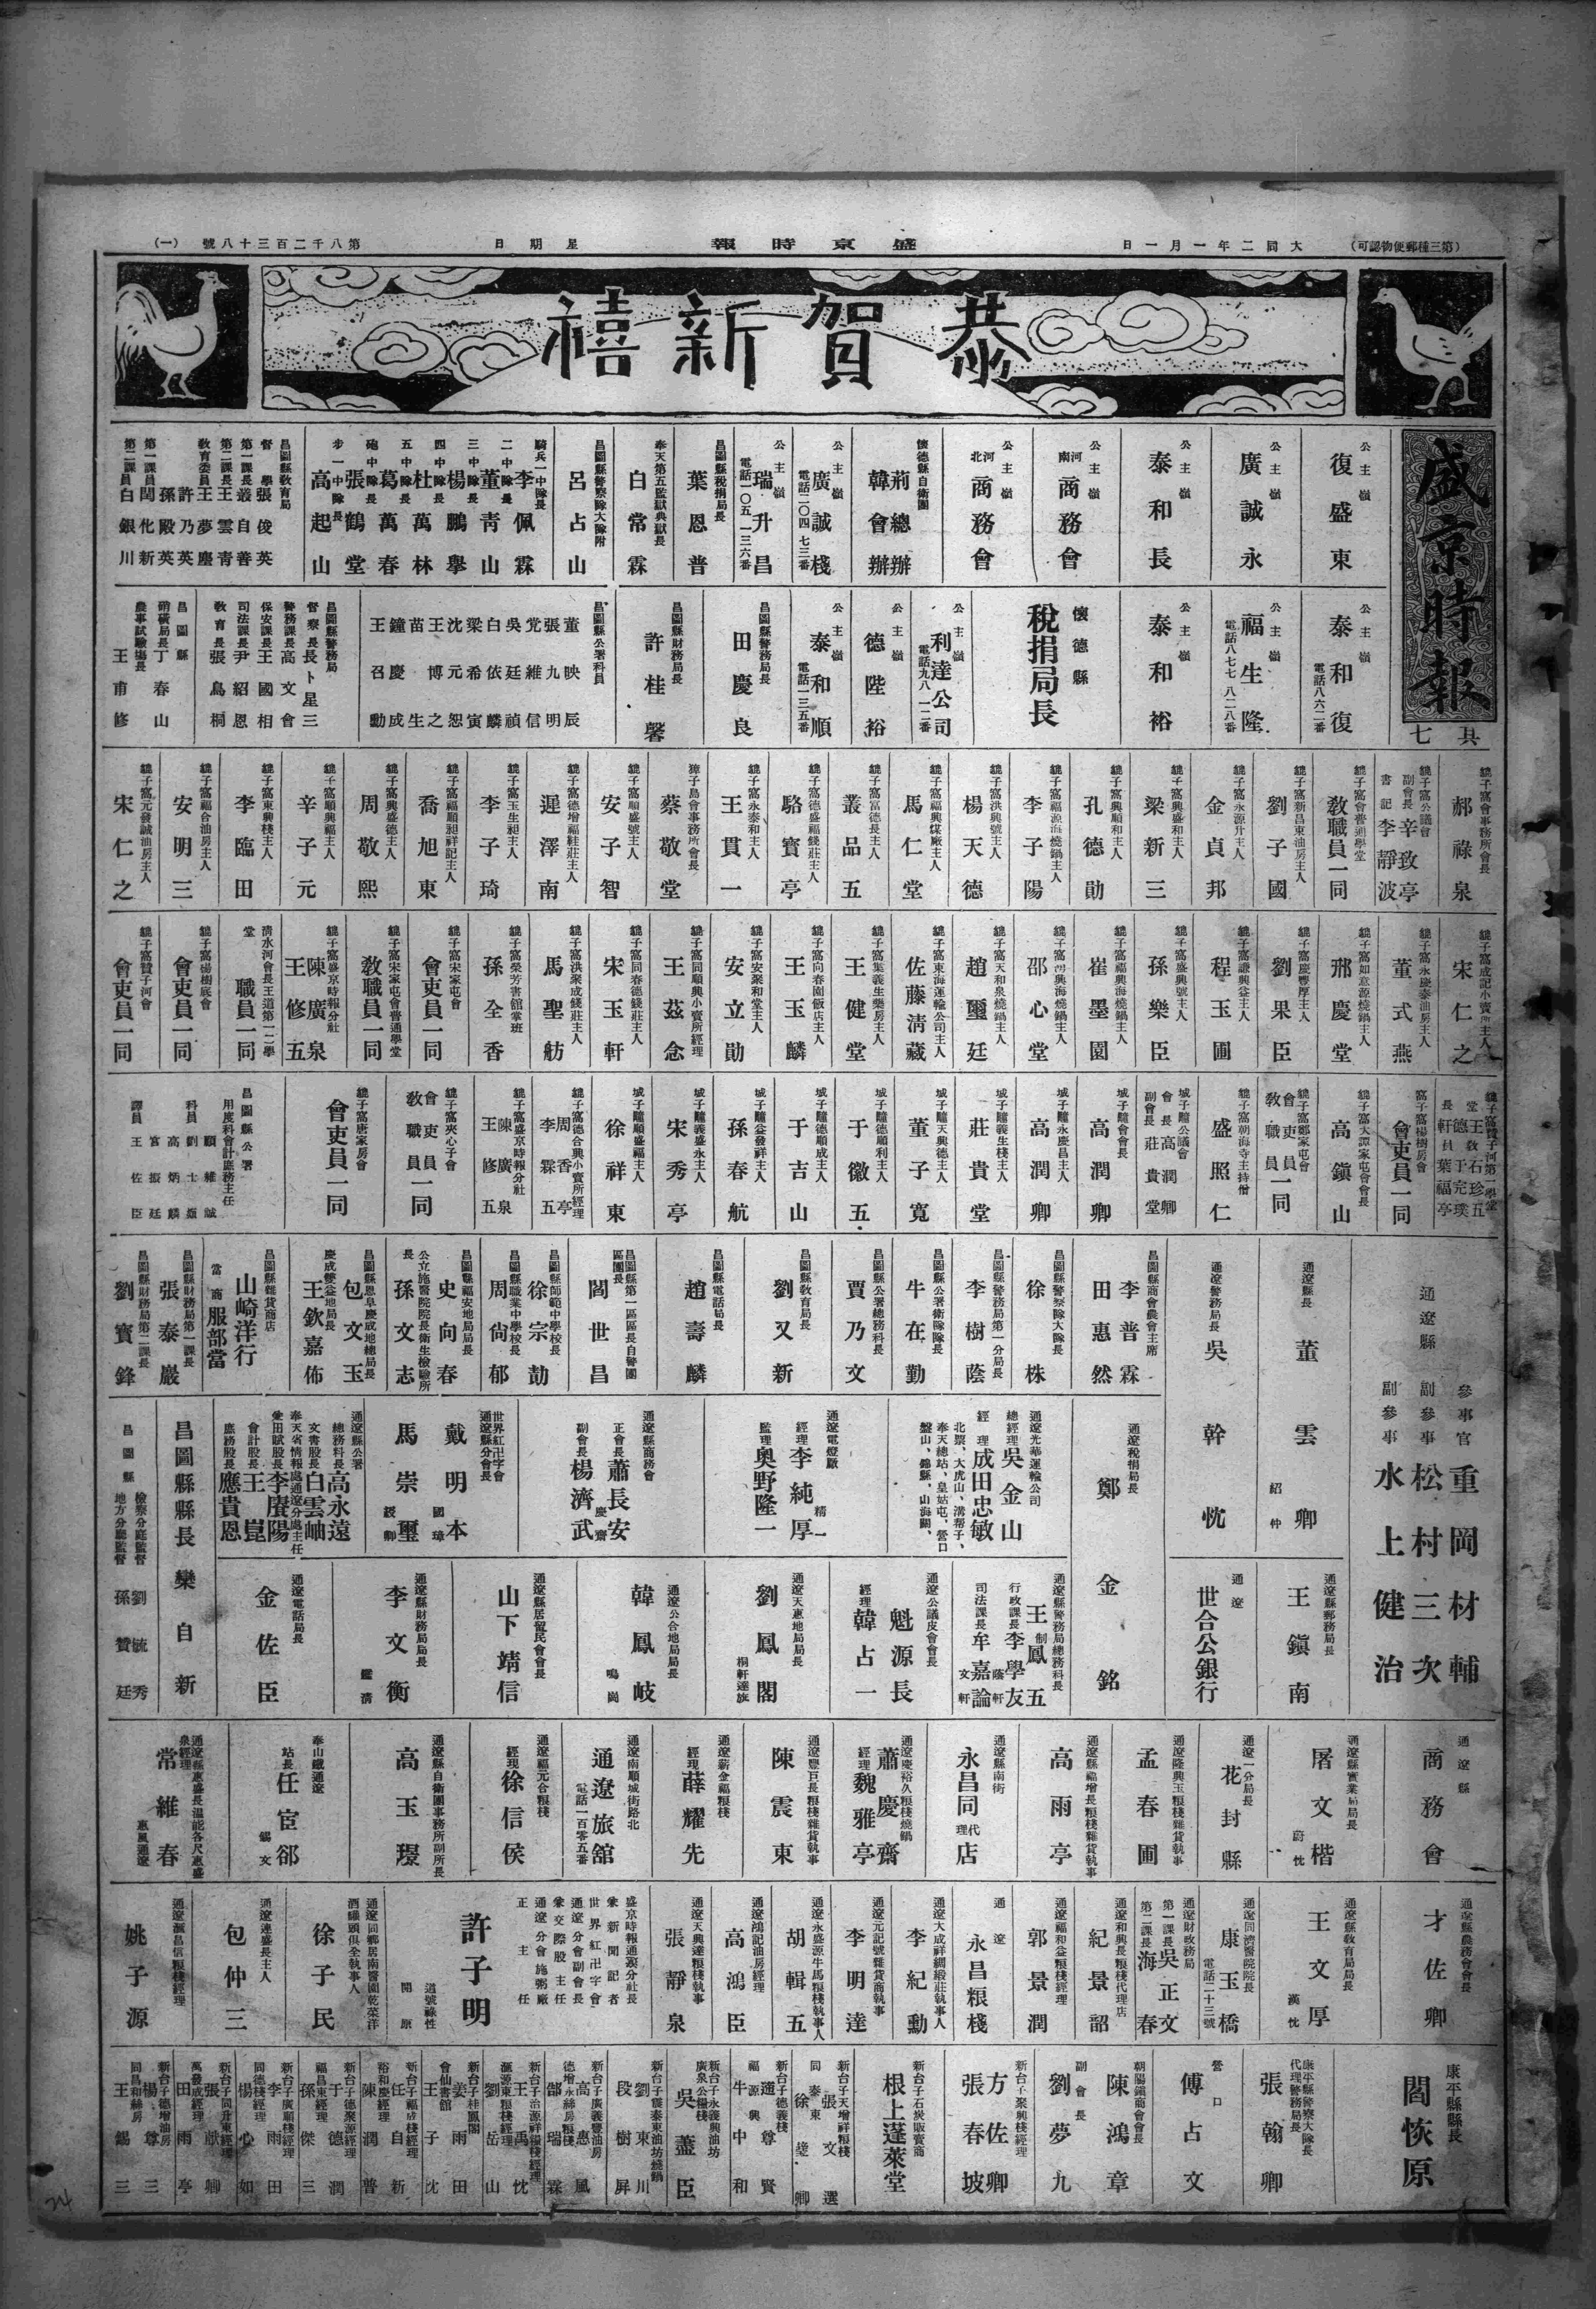 (第三種郵便物認可)
大同二年一月一日
盛京時報
星期日
第八千二百三十八號
(一)
恭賀新禧
盛京時報
其七
公主嶺
復盛東
公主嶺
廣誠永
公主嶺
泰和長
公主嶺
河南
商務會
公主嶺
河北
商務會
懷德縣自衛團
荊總辦
韓會辦
公主嶺
廣誠棧
電話二〇四 七三番
公主嶺
瑞升昌
電話一〇五 一三六番
昌圖縣稅捐局長
葉恩普
奉天第五監獄典獄長
白常霖
昌圖縣警察隊大隊附
呂占山
騎兵一中隊長
李佩霖
二中隊長
董青山
三中隊長
楊鵬舉
四中隊長
杜萬林
五中隊長
葛萬春
砲中隊長
張鶴堂
步一中隊長
高起山
昌圖縣教育局
督學
張俊英
第一課長
叢自善
第二課長
王雲青
教育委員
王夢塵
許乃英
孫殿英
第一課員
閔化新
第二課員
白銀川
公主嶺
泰和復
電話八六二番
公主嶺
福生隆
電話八七七 八二八番
公主嶺
泰和裕
懷德縣
稅捐局長
公主嶺
利達公司
電話九八 一二番
公主嶺
德陞裕
公主嶺
泰和順
電話一三五番
昌圖縣警務局長
田慶良
昌圖縣財務局長
許桂馨
昌圖縣公署科員
董映辰
張九明
党維信
吳廷禎
白依麟
梁希寅
沈元恕
王博之
苗生
鐘慶成
王召勳
昌圖縣警務局
督察長
長卜星三
警務課長
高文會
保安課長
王國相
司法課長
尹紹恩
教育長
張鳥桐
昌圖縣
硝磺局長
丁春山
農事試驗場長
王甫修
貔子窩會事務所會長
郝祿泉
貔子窩公議會
副會長
辛玫亭
書記
李靜波
貔子窩會普通學堂
教職員一同
貔子窩新昌東油房主人
劉子國
貔子窩永源升主人
金貞邦
貔子窩興盛和主人
梁新三
貔子窩興順和主人
孔德勛
貔子窩福源海燒鍋主人
李子陽
貔子窩洪興號主人
楊天德
貔子窩福興煤廠主人
馬仁堂
貔子窩富德長主人
叢品五
貔子窩德盛福錢莊主人
駱寶亭
貔子窩永泰和主人
王貫一
獐子島會事務所會長
蔡敬堂
貔子窩順盛號主人
安子智
貔子窩德增福鞋莊主人
遲澤南
貔子窩玉生昶主人
李子琦
貔子窩福順昶祥記主人
喬旭東
貔子窩興盛德主人
周敬熙
貔子窩順興福主人
辛子元
貔子窩東興棧主人
李臨田
貔子窩福合油房主人
安明三
貔子窩元發誠油房主人
宋仁之
貔子窩成記小賣所主人
宋仁之
貔子窩永慶泰油房主人
董式燕
貔子窩如意源燒鍋主人
邢慶堂
貔子窩慶豐厚主人
劉果臣
貔子窩謙興益主人
程玉圃
貔子窩盛興號主人
孫樂臣
貔子窩福興海燒鍋主人
崔墨園
貔子窩興海燒鍋主人
邵心堂
貔子窩天和泉燒鍋主人
趙璽廷
貔子窩東海運輸公司主人
佐藤淸藏
貔子窩葉義生藥房主人
王健堂
貔子窩向春園飯店主人
王玉麟
貔子窩安聚和堂主人
安立勛
貔子窩同順興小賣所經理
王茲念
貔子窩同春德錢莊主人
宋玉軒
貔子窩洪聚成錢莊主人
馬聖舫
貔子窩榮芳書館掌班
孫全香
貔子窩宋家屯會
會吏員一同
貔子窩宋家屯會普通學堂
教職員一同
貔子窩盛京時報分社
陳廣泉
王修五
淸水河會長王道第一二學堂
職員一同
貔子窩楊樹底會
會吏員一同
貔子窩贊子河會
會吏員一同
貔子窩贊子河第一學堂
窩子窩楊樹房會
會吏員一同
貔子窩大譚家屯會會長
高鎭山
貔子窩鄭家屯會
會吏員
教職員
一同
貔子窩朝海寺主持僧
盛照仁
城子疃公議會
會長
高潤卿
副會長
莊貴堂
城子疃會會長
高潤卿
城子疃永慶昌主人
高潤卿
城子疃義生棧主人
莊貴堂
城子疃天興德主人
董子寬
城子疃德順利主人
于徽五
城子疃德順成主人
于吉山
城子疃益發祥主人
孫春航
城子疃義盛永主人
宋秀亭
城子疃順盛福主人
徐祥東
貔子窩德合興小賣所經理
周香亭
李霖五
貔子窩盛京時報分社
陳廣泉
王修五
貔子窩夾心子會
會吏員
教職員
一同
貔子窩唐家房會
會吏員一同
昌圖縣公署
用度科會計庶務主任
顧維誠
科員
劉士嶺
高炳麟
宮振廷
譯員
王佐臣
通遼縣
參事官
重岡材輔
副參事
松村三次
副參事
水上健治
通遼縣長
董雲卿
紹仲
通遼警務局長
吳幹忱
昌圖縣商會農會主席
李普霖
田惠然
昌圖縣警察隊大隊長
徐株
昌圖縣警務局第一分局長
李樹蔭
昌圖縣公署衛隊隊長
牛在勤
昌圖縣公署總務科長
賈乃文
昌圖縣教育局長
劉又新
昌圖縣電話局長
趙壽麟
昌圖縣第一區區長自警團區團長
閻世昌
昌圖縣師範中學校長
徐宗劼
昌圖縣職業中學校長
周尙郁
昌圖縣福安地局局長
史向春
公立施醫院院長衛生檢驗所長
孫文志
昌圖縣恩阜慶成地總局長
包文玉
慶成雙益地局長
王欽嘉佈
昌圖縣雜貨商店
山崎洋行
當商
服部當
昌圖縣財務局第一課長
張泰巖
昌圖縣財務局第二課長
劉寶鋒
通遼稅捐局長
鄭金銘
通遼光華運輸公司
總經理
吳金山
經理
成田忠敏
北票、大虎山、溝幇子、
奉天總站、皇姑屯、營口
盤山、錦縣、山海關、
通遼電燈廠
經理
李純厚
精一
監理
奧野隆一
通遼縣商務會
正會長
蕭長安
慶齋
副會長
楊濟武
世界紅卍字會
通遼縣分會長
戴明本
國璋
馬崇璽
綬卿
通遼縣公署
總務科長
高永遠
文書股長
白雲岫
奉天省情報處通遼分處主任
兼田賦股長
李賡陽
會計股長
王崑
庶務股長
應貴恩
昌圖縣縣長
欒自新
昌圖縣
檢察分庭監督
劉毓秀
地方分廳監督
孫贊廷
通遼縣郵務局長
王鎭南
通遼
世合公銀行
通遼縣警務局總務科長
王鳳五
制
行政課長
李學友
蔭軒
司法課長
牟嘉論
文軒
通遼公議皮會會長
魁源長
經理
韓占一
通遼天惠地局局長
劉鳳閣
桐軒達族
通遼公合地局局長
韓鳳岐
鳴崗
通遼縣居留民會會長
山下靖信
通遼縣財務局局長
李文衡
鑑淸
通遼電話局長
金佐臣
通遼縣
商務會
通遼縣實業局局長
屠文楷
蔚忱
通遼一分局長
花封縣
通遼隆興玉糧棧雜貨執事
孟春圃
通遼縣福增長糧棧雜貨執事
高雨亭
通遼縣南街
永昌同店
代理
通遼慶裕久糧棧燒鍋
蕭慶齋
經理
魏雅亭
通遼豐巨長糧棧雜貨執事
陳震東
通遼薪金福糧棧
經理
薛耀先
通遼南順城街路北
通遼旅舘
電話一百零五番
通遼福元合糧棧
經理
徐信侯
通遼縣自衛團事務所副所長
高玉璟
奉山鐵通遼
站長
任宦郤
錫文
常維春
惠風通遼
通遼縣農務會會長
才佐卿
通遼縣教育局局長
王文厚
漢忱
通遼同濟醫院院長
康玉橋
電話二十三號
通遼財政務局
第一課長
吳正文
第二課長
海春
通遼和興長糧棧代理店
紀景韶
通遼福和益糧棧經理
郭景潤
通遼
永昌粮棧
通遼大成祥綢緞莊執事人
李紀勳
通遼元記號雜貨商執事
李明達
通遼永盛源牛馬糧棧執事人
胡輯五
通遼鴻記油房經理
高鴻臣
通遼天興達糧棧執事
張靜泉
盛京時報通遼分社長
兼新聞記者
世界紅卍字會
通遼分會副會長
兼交際股主任
通遼分會施粥廠
正主任
許子明
道號祿性
開原
通遼同鄉居南醫園乾菜洋
酒罐頭俱全執事人
徐子民
通遼連盛長主人
包仲三
通遼滙昌信糧棧經理
姚子源
康平縣縣長
閻恢原
康平縣警察大隊長
代理警務局長
張翰卿
營口
傅占文
朝陽鎭商會會長
陳鴻章
副會長
劉夢九
新台子聚興棧經理
方佐卿
張春坡
新台子石炭販賣商
根上蓬萊堂
新台子天增祥糧棧
張文選
同泰東
徐楚卿
新台子德義棧
遲尊賢
福源興
牛中和
新台子永義興油坊
廣泉公糧棧
吳藎臣
新台子震泰東油坊燒鍋
劉東川
段樹屏
新台子廣義豐油房
高惠風
德增永絲房糧棧
郜瑞霖
新台子治源祥糧棧經理
王禹忱
滙源東糧棧經理
劉岳山
新台子桂鳳閣
姜雨田
會仙書館
王子沈
新台子福成棧經理
任自新
裕和慶經理
陳潤普
新台子德聚源經理
于德潤
福昌東經理
孫傑三
新台子廣順棧經理
李雨田
同德棧經理
楊心如
新台子同升東經理
張獻卿
萬發成經理
田雨亭
新台子德增油房
楊尊三
同昌和絲房
王錫三